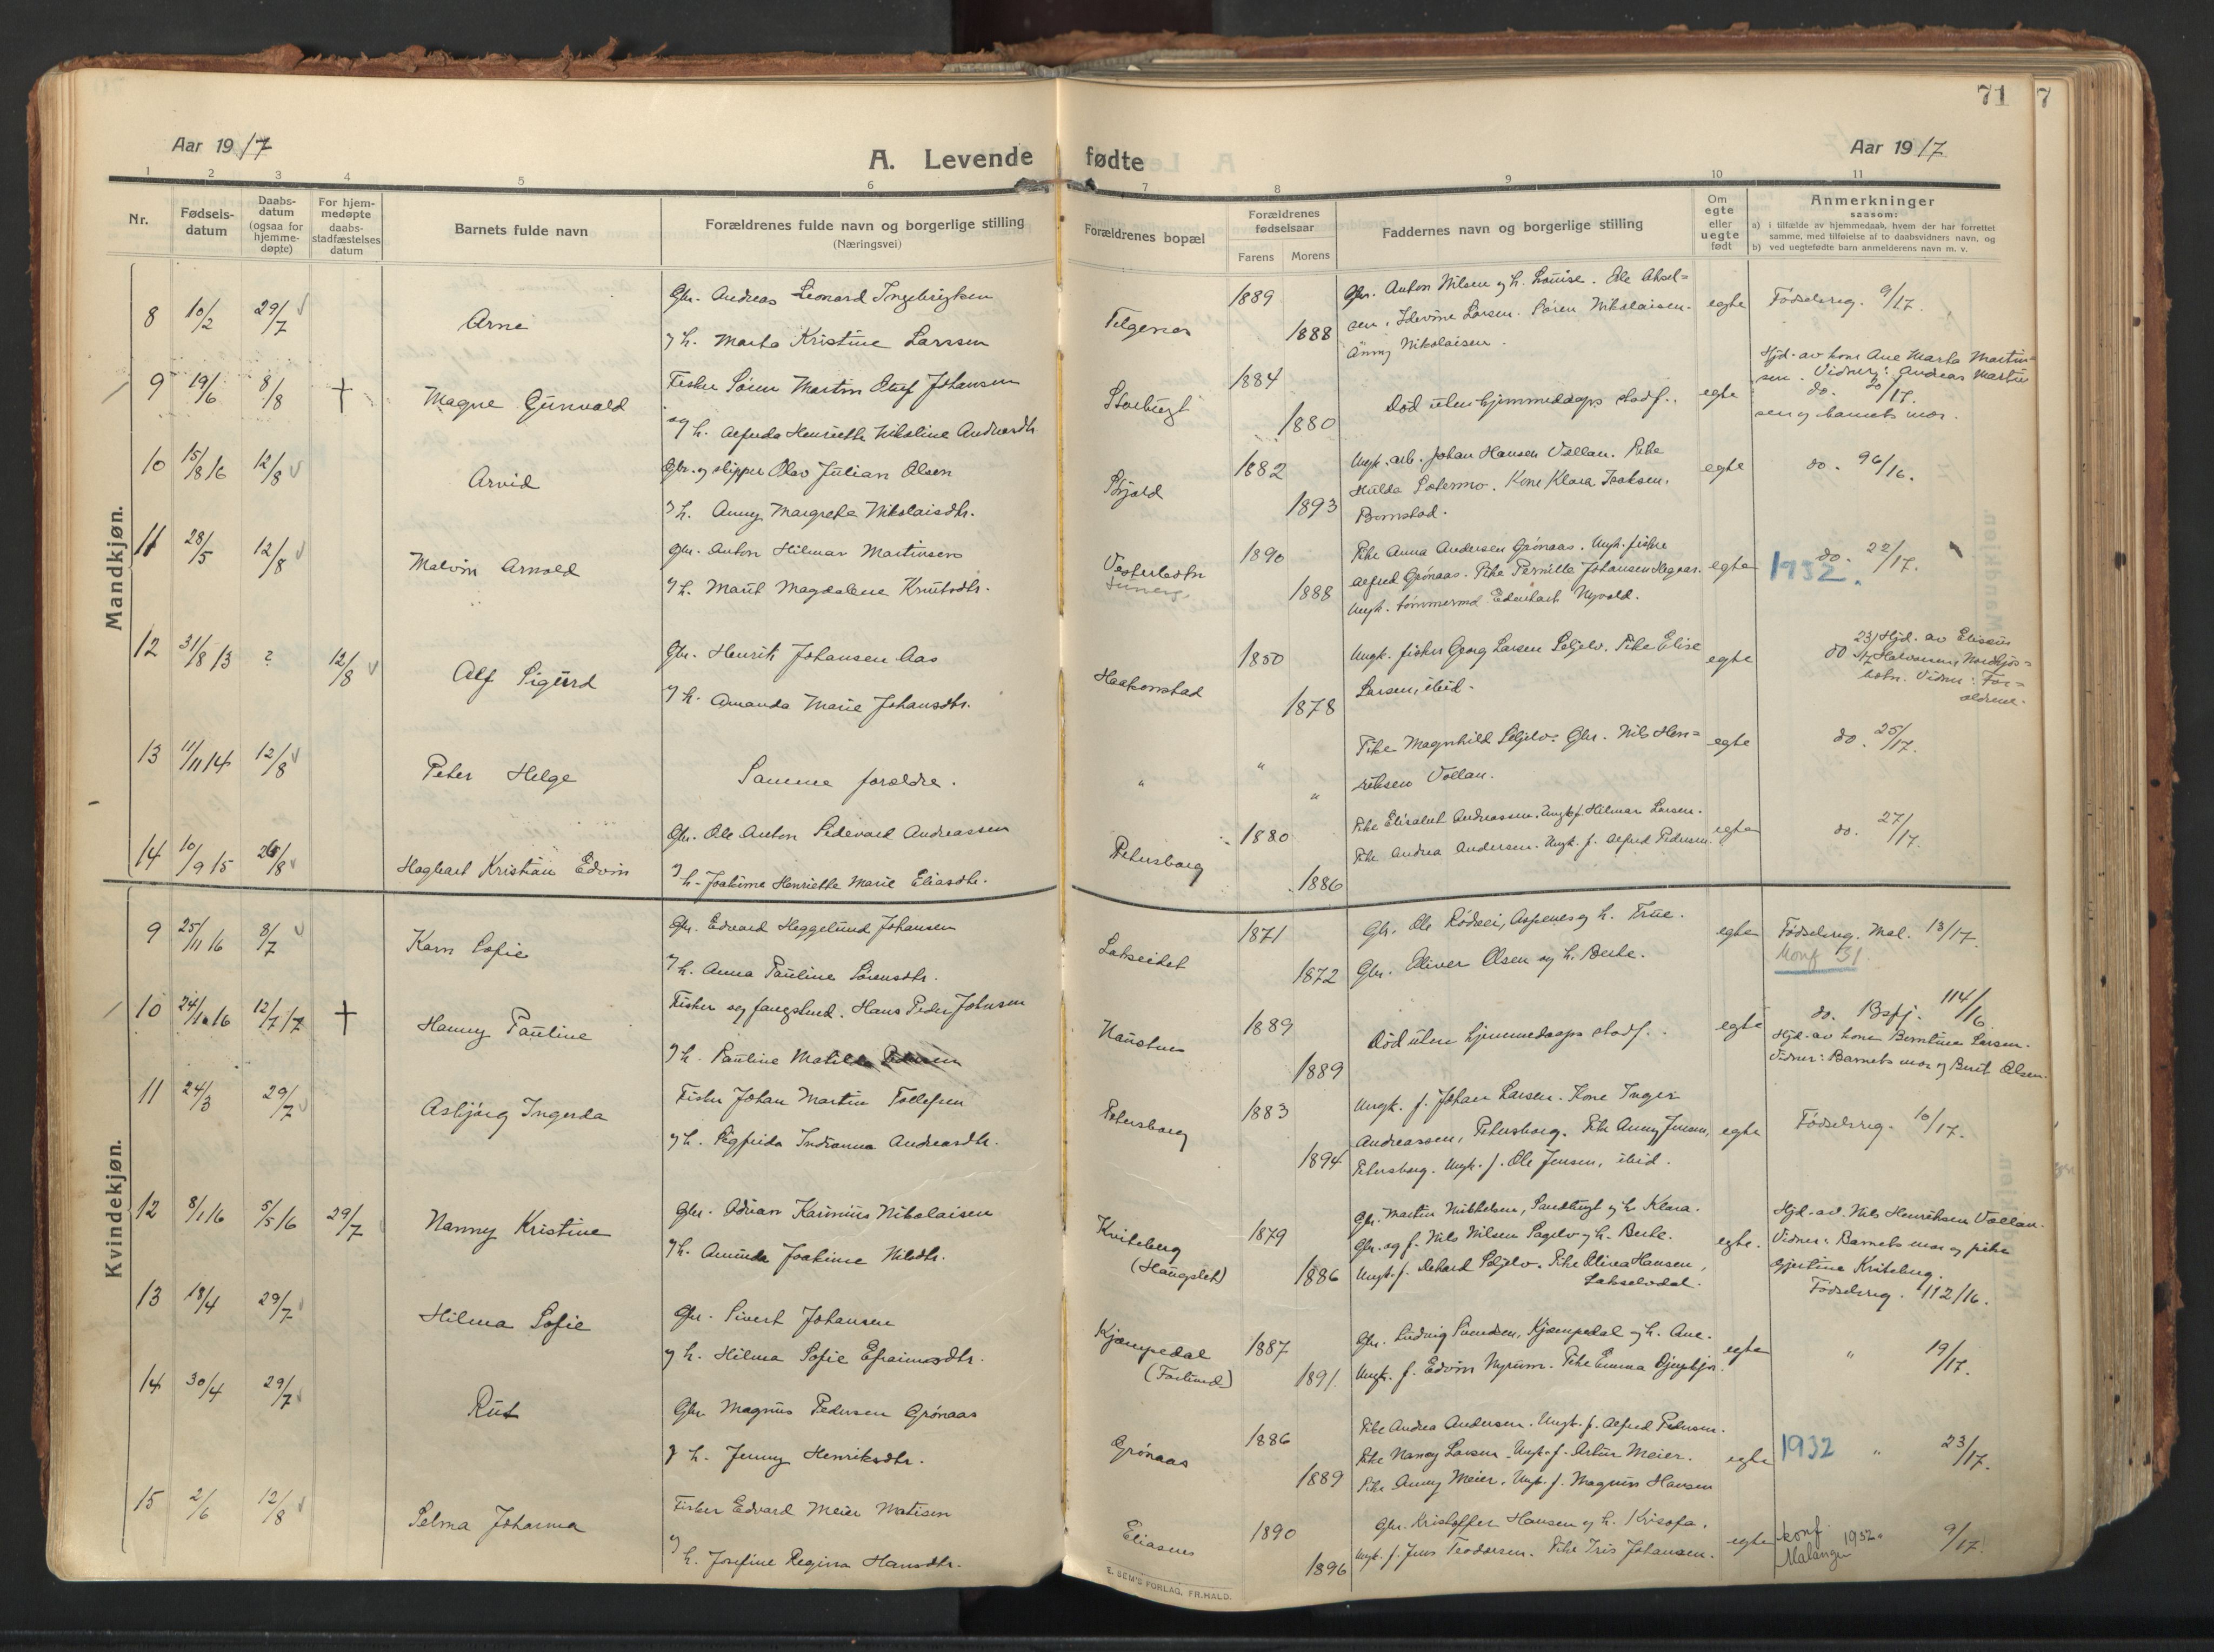 71
7
Aar 1917
A. Levende fødte
Aar 1917
1 2 3 4 5 6 7 8 9 10 11
Nr.
Fødsels-
datum
Daabs-
datum
(ogsaa for
hjemme-
døpte)
For hjem-
medøpte
daabs-
stadfæstelses
datum
Barnets fulde navn
Forældrenes fulde navn og borgerlige stilling
(Næringsvei)
Forældrenes bopæl
Forældrenes
fødselsaar
Farens Morens
Faddernes navn og borgerlige stilling
Om
egte
eller
uegte
født
Anmerkninger
saasom:
a) i tilfælde av hjemmedaab, hvem der har forrettet
samme, med tilføielse af to daabsvidners navn, og
b) ved uegtefødte barn anmelderens navn m. v.
Mandkjøn.
8 10/2 29/7 Arne
Gbr. Andreas Leonard Ingebrigtsen
og h. Marta Kristine Larssen
1889
1888
Gbr. Anton Nilsen og h. Louise. Ole Aksel-
sen, Larsen. Søren Nikolaisen.
Anny Nikolaisen.
egte Fødselsreg. 9/17.
9 19/6 8/8 † Magne Gunvald
Fisker Søren Martin Johansen
og h. Alfreda Henriette Nikoline
Storbugt
1884
1880
Død uten hjemmedaaps stadf.
egte
Hjd. av kone Ane Marta Martin-
sen. Vidner: Andreas Martin
do. 20/17.
sen og barnets mor.
10 15/8 16 12/8 Arvid
Gbr. og skipper Olav Julian Olsen
og h. Anny Margrete Nikolaisdtr.
Skjold
1882
1893
Ungk. arb. Johan Hansen Vollan. Pike
Hulda Sætermo. Kone Klara Isaksen,
Bomstad.
egte do. 96/16.
11 28/5 12/8 Malvin Arnold
Gbr. Anton Hilmar Martinsen
og h. Marit Magdalene Knutsdtr.
Vesterbotn
1890
1888
Pike Anna Andersen Grønaas. Ungk. fisker
Alfred Grønaas. Pike Pernille Johansen
Ungk. tømmermd. Edenhart Nyvold.
egte 1932. do. 22/17.
12 31/8 13 ? 12/8 Alf Sigurd
Gbr. Henrik Johansen Aas
og h. Amanda Marie Johansdtr.
Haakonstad
1850
1878
Ungk. fisker Georg Larsen Seljelv. Pike Elise
Larsen, ibid.
egte do
23/17 Hjd. av Eliseus
Halvorsen, Nordkjos-
botn. Vidner: For-
ældrene.
13 11/11 14 12/8 Peter Helge
Samme forældre.
" " "
Pike Magnhild Seljelv. Gbr. Nils Hen-
riksen Vollan.
egte do. 25/17.
14 10/9 15 26/8 Hagbart Kristian Edvin
Gbr. Ole Anton Sedevard Andreassen
og h. Joakime Henriette Marie Eliasdtr.
Petersborg
1880
1886
Pike Elisabet Andreassen. Ungk. f. Hilmar Larsen.
Pike Andrea Andersen. Ungk. f. Alfred Pedersen.
egte do. 27/17.
Kvindekjøn.
9 25/11 16 8/7 Karn Sofie
Gbr. Edvard Heggelund Johansen
og h. Anna Pauline Sørensdtr.
Lakseidet
1871
1872
Gbr. Ole Rødsei, Aspenes og h. Trine.
Gbr. Oliver Olsen og h. Berte.
egte Fødselsreg. Mal. 13/17.
Konf 31
10 24/10 16 12/7 17 † Hanny Pauline
Fisker og fangstmd. Hans Peder Johnsen
og h. Pauline Matilde
1889
1889
Død uten hjemmedaaps stadf.
egte do. Bspj. 114/16.
Hjd. av kone Berntine Larsen.
Vidner: Barnets mor og Berit Olsen.
11 24/3 29/7 Asbjørg Ingerda
Fisker Johan Martin Tollefsen
og h. Sigfrida Indianna Andreasdtr.
Petersborg
1883
1894
Ungk. f. Johan Larsen. Kone Inger
Andreassen, Petersborg. Pike Anny Jensen,
Petersborg. Ungk. f. Ole Jensen, ibid.
egte Fødselsreg. 10/17.
12 8/1 16 5/5 16 29/7 Nanny Kristine
Gbr. Adrian Kasinius Nikolaisen
og h. Aminda Joakime Nilsdtr.
Kviteberg
(Haugslet)
1879
1886
Gbr. Martin Mikkelsen, Sandbugt og h. Klara.
Gbr. og f. Nils Nilsen Sagelv og h. Berte.
Ungk. f. Rekard Seljelv. Pike Olivea Hansen,
Lakselvdal.
egte.
Hjd. av Nils Henriksen Vollan.
Vidner: Barnets mor og pike
Gjertine Kviteberg.
Fødselsreg. 112/16.
13 18/4 29/7 Hilma Sofie
Gbr. Sivert Johansen
og h. Hilma Sofie Efraimsdtr.
Kjempedal
1887
1891.
Gbr. Ludvig Svendsen, Kjempedal og h. Ane.
Ungk. f. Edvin Nyrum. Pike Emma
egte " 19/17.
14 30/4 29/7 Rut
Gbr. Magnus Pedersen Grønaas
og h. Jenny Henriksdtr.
Grønaas
1886
1889
Pike Andrea Andersen. Ungk. f. Alfred Pedersen.
Pike Nancy Larsen. Ungk. f. Artur Meier.
Pike Anny Meier. Ungk. f. Magnus Hansen
egte 1932 " 23/17.
15 2/6 12/8 Selma Johanna
Fisker Edvard Meier Matisen
og h. Josefine Regina Hansdtr.
Eliasnes
1890
1896
Gbr. Kristoffer Hansen og h. Krisofa.
Ungk. f. Jens Teodorsen. Pike Iris Johansen.
egte konf. 1932. 9/17.
Malangen
E. SEM'S FORLAG, FR.HALD.